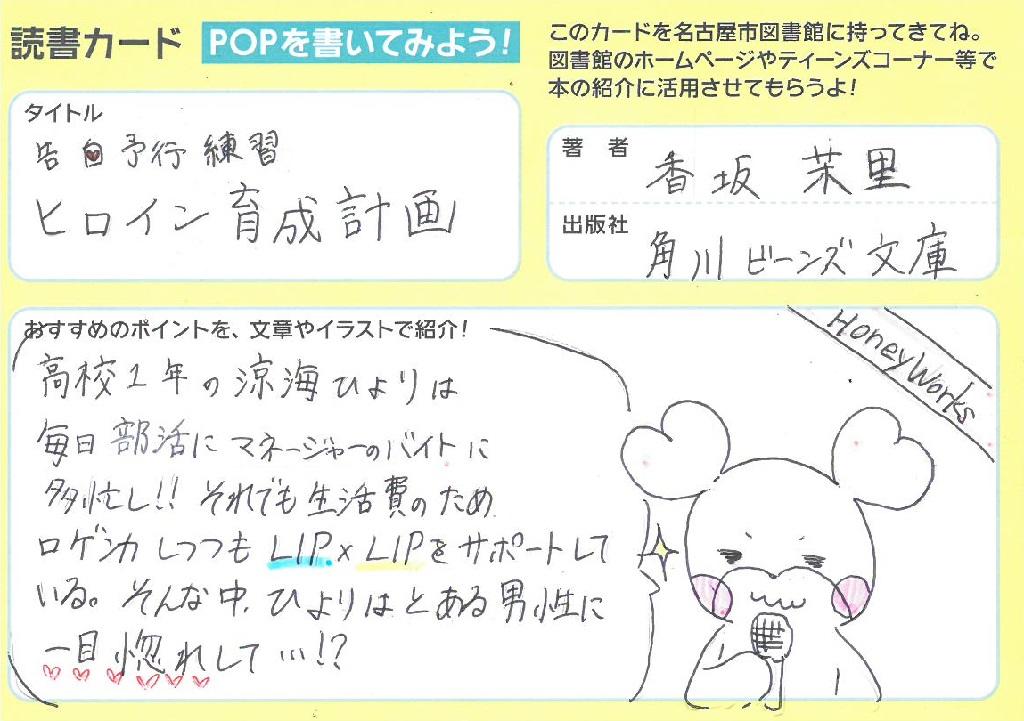 読書カード
POPを書いてみよう!
このカードを名古屋市図書館に持ってきてね。
図書館のホームページやティーンズコーナー等で
本の紹介に活用させてもらうよ!
タイトル
告白予行練習
ヒロイン育成計画
著 者
香坂 茉里
出版社
角川ビーンズ文庫
おすすめのポイントを、文章やイラストで紹介!
高校1年の涼海ひよりは
毎日部活にマネージャーのバイトに
多忙し!! それでも生活費のため
口ゲンカしつつもLIP×LIPをサポートして
いる。そんな中、ひよりはとある男性に
一目惚れして…!?
HoneyWorks